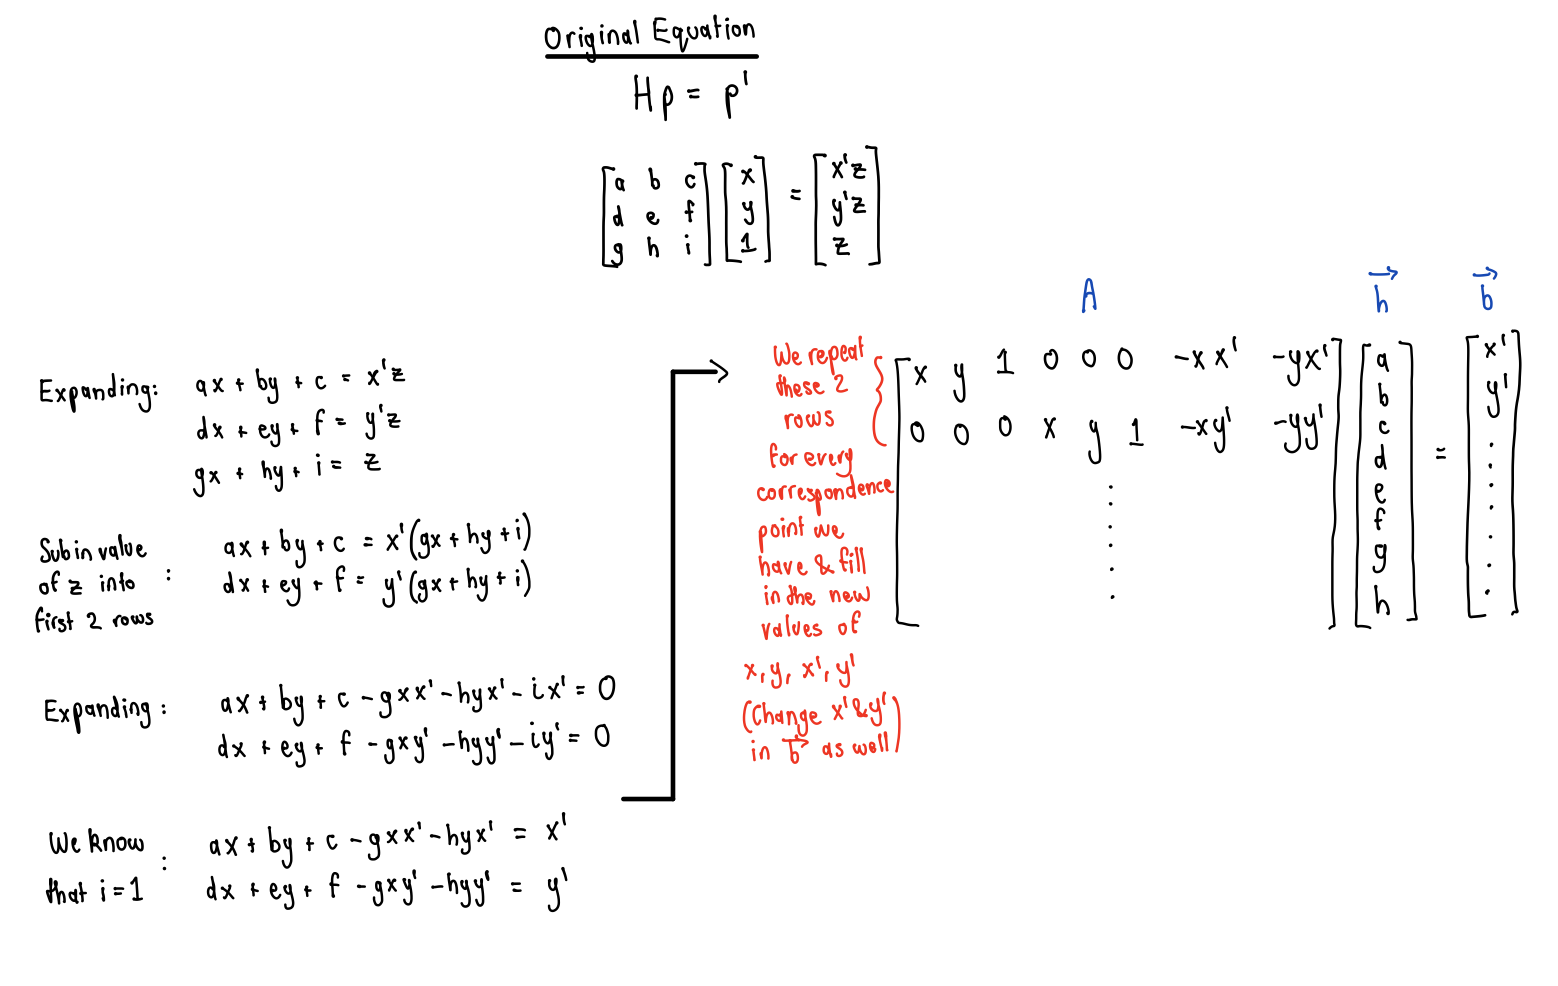 Original Equation
Hp = p'
[a b c] [x] = [x'z]
[d e f] [y] [y'z]
[g h i] [1] [z]
Expanding: ax + by + c = x'z
dx + ey + f = y'z
gx + hy + i = z
Sub in value of z into first 2 rows : ax + by + c = x'(gx + hy + i)
dx + ey + f = y'(gx + hy + i)
Expanding : ax + by + c - gxx' - hyx' - ix' = 0
dx + ey + f - gxy' - hyy' - iy' = 0
We know that i = 1 : ax + by + c - gxx' - hyx' = x'
dx + ey + f - gxy' - hyy' = y'
We repeat
these 2
rows
for every
correspondence
point we
have & fill
in the new
values of
x, y, x', y'
(Change x' & y'
in b as well)
A h b
x y 1 0 0 0 -xx' -yx'
0 0 0 x y 1 -xy' -yy'
a
b
c
d
e
f
g
h
=
x'
y'